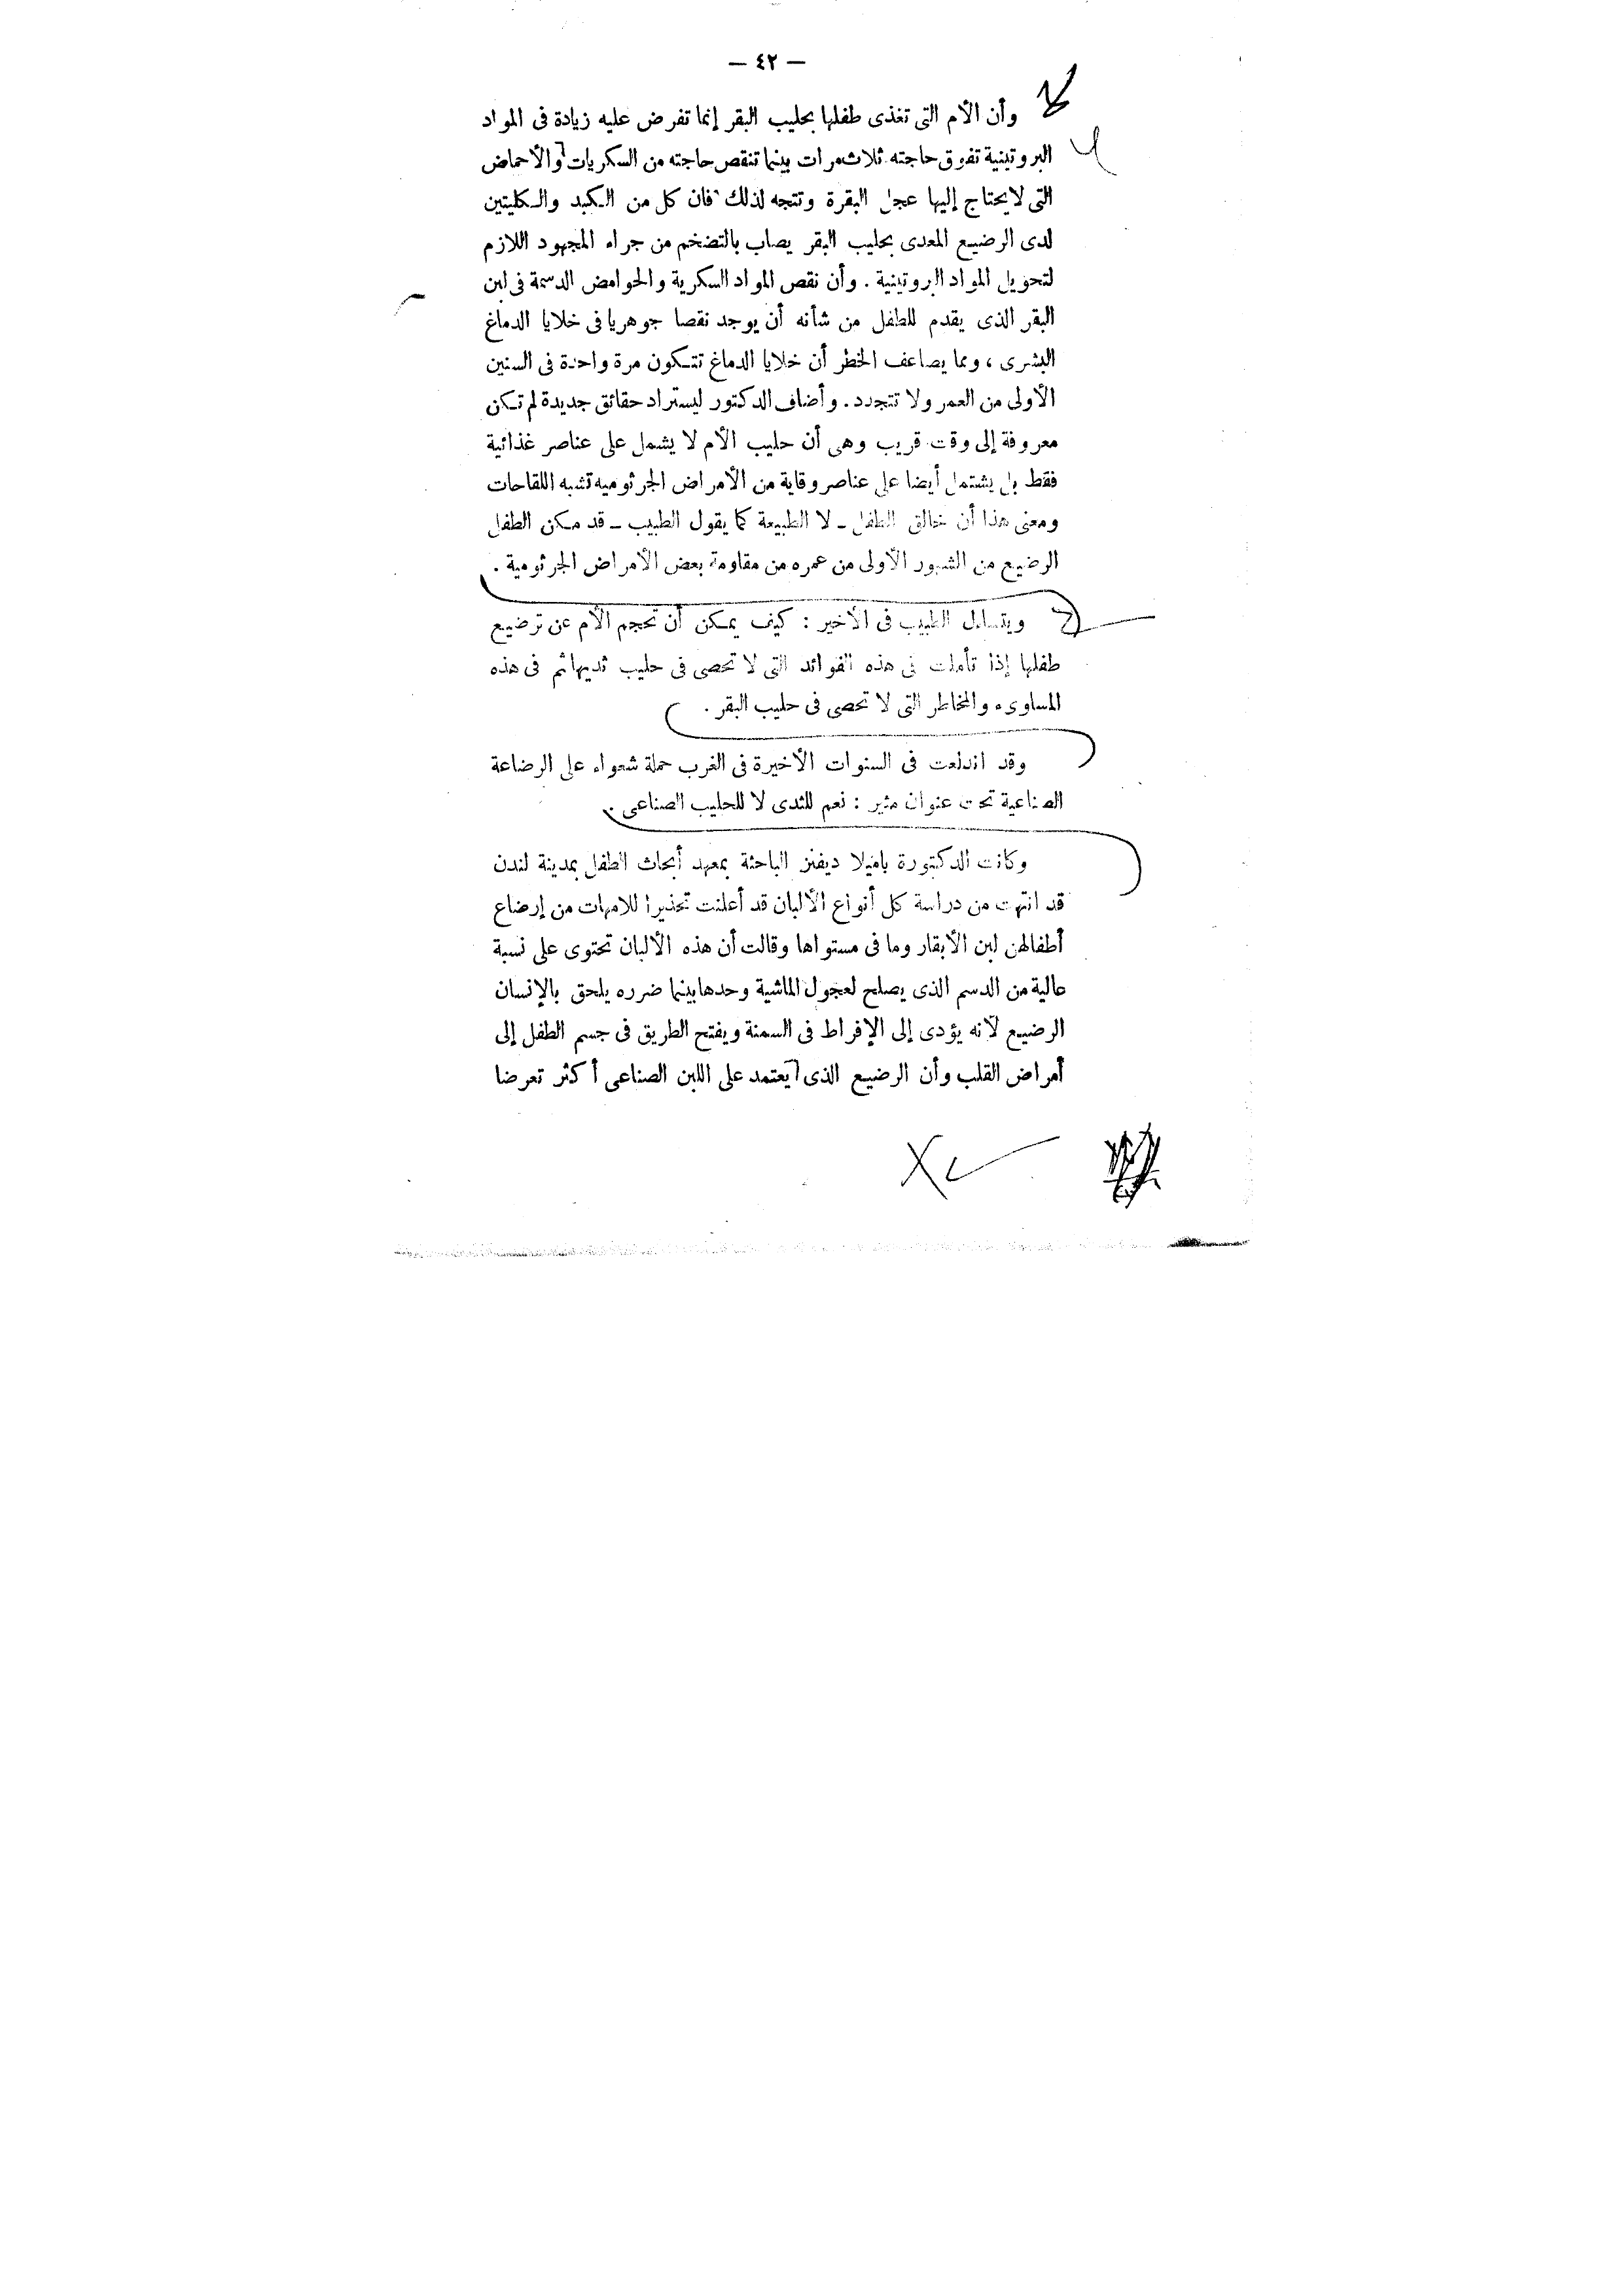 — ٤٢ —
وأن الأم التى تغذى طفلها بحليب البقر إنما تفرض عليه زيادة فى المواد
البروتينية تفوق حاجته ثلاث مرات بينما تنقص حاجته من السكريات والأحماض
التى لا يحتاج إليها عجل البقرة وتتجه لذلك فان كل من الكبد والكليتين
لدى الرضيع المعدى بحليب البقر يصاب بالتضخم من جراء المجهود اللازم
لتحويل المواد البروتينية . وأن نقص المواد السكرية والحوامض الدسمة فى لبن
البقر الذى يقدم للطفل من شأنه أن يوجد نقصا جوهريا فى خلايا الدماغ
البشرى ، ومما يصاعف الخطر أن خلايا الدماغ تتكون مرة واحدة فى السنين
الأولى من العمر ولا تتجدد . وأضاف الدكتور ليستراد حقائق جديدة لم تكن
معروفة إلى وقت قريب وهى أن حليب الأم لا يشمل على عناصر غذائية
فقط بل يشتمل أيضا على عناصر وقاية من الأمراض الجرثوميه تشبه اللقاحات
ومعنى هذا أن خالق الطفل ـ لا الطبيعة كما يقول الطبيب ـ قد مكن الطفل
الرضيع من الشهور الأولى من عمره من مقاومة بعض الأمراض الجرثومية .
ويتساءل الطبيب فى الأخير : كيف يمكن أن تحجم الأم عن ترضيع
طفلها إذا تأملت فى هذه الفوائد التى لا تحصى فى حليب ثديها ثم فى هذه
المساوىء والمخاطر التى لا تحصى فى حليب البقر .
وقد اندلعت فى السنوات الأخيرة فى الغرب حملة شعواء على الرضاعة
الصناعية تحت عنوان مثير : نعم للثدى لا للحليب الصناعى .
وكانت الدكتورة باميلا ديفنز الباحثة بمعهد أبحاث الطفل بمدينة لندن
قد انتهت من دراسة كل أنواع الألبان قد أعلنت تحذيرا للامهات من إرضاع
أطفالهن لبن الأبقار وما فى مستواها وقالت أن هذه الألبان تحتوى على نسبة
عالية من الدسم الذى يصلح لعجول الماشية وحدها بينما ضرره يلحق بالإنسان
الرضيع لأنه يؤدى إلى الإفراط فى السمنة ويفتح الطريق فى جسم الطفل إلى
أمراض القلب وأن الرضيع الذى يعتمد على اللبن الصناعى أكثر تعرضا